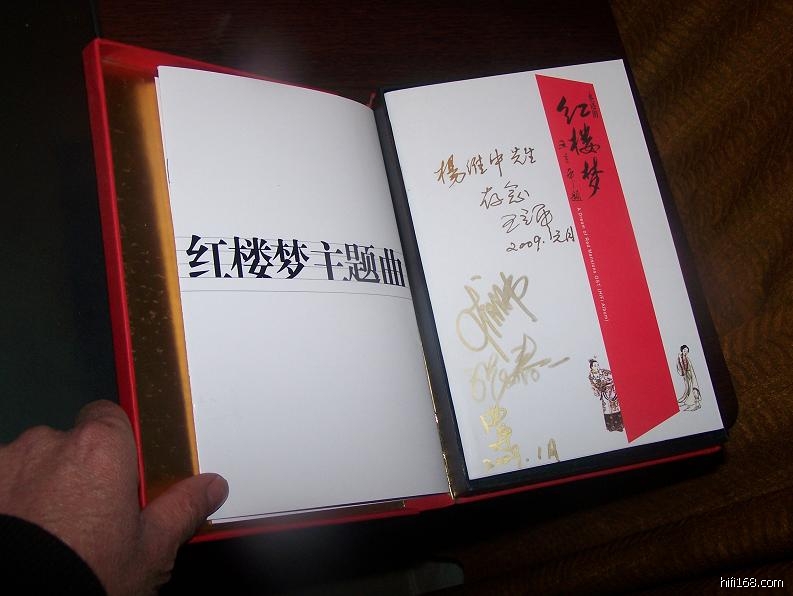 红楼梦主题曲
红楼梦
A Dream of Red Mansions OST (HiFi Album)
楊維中先生
存念
王立平
2009.元月
2009.1月
hifi168.com